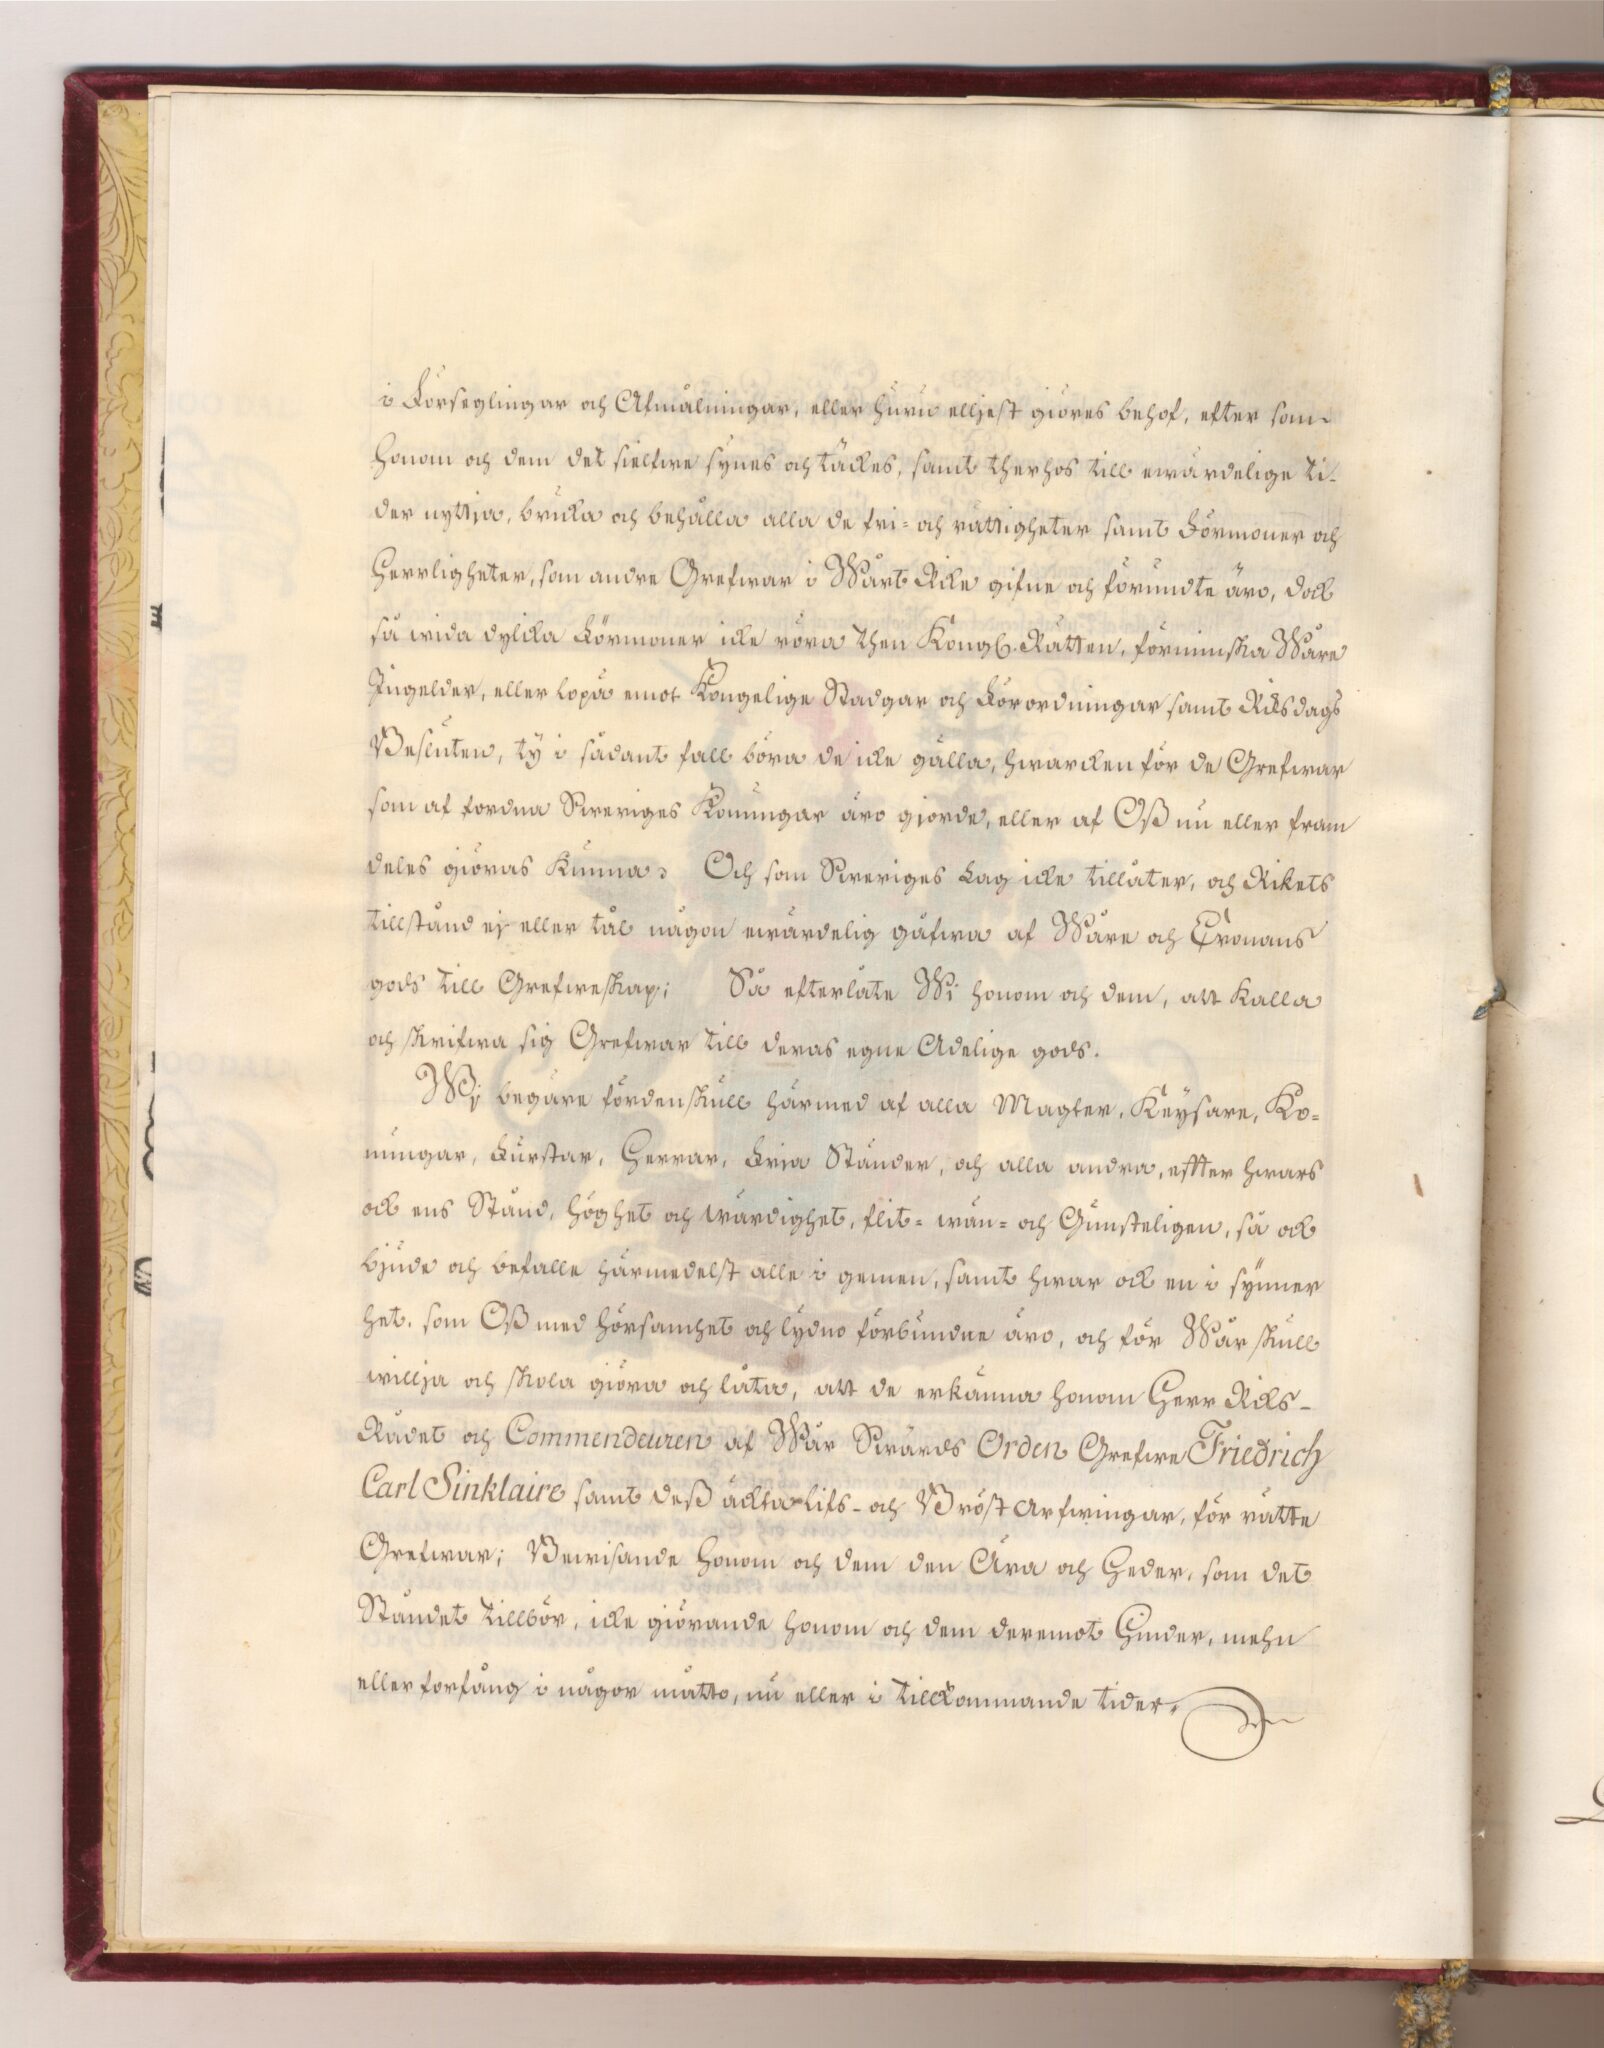 i Förseglingar och Afmålningar, eller huru elljest giöres behof, efter som
honom och dem det sielfwe synes och täckes, samt therhos till ewärdelige ti-
der nyttja, bruka och behålla alla de fri- och rättigheter samt Förmoner och
Herrligheter, som andre Grefwar i Wårt Rike gifne och förundte äro, dock
så wida dylika Förmoner icke röra then Kongl. Rätten, förminska Wåre
Ingelder, eller lopa emot Kongelige Stadgar och Förordningar samt Riksdags
Besluten, ty i sådant fall böra de icke gälla, hwarcken för de Grefwar
som af fordna Sweriges Konungar äro gjorde, eller af Oß nu eller fram
deles giöras kunna. Och som Sweriges Lag icke tillåter, och Rikets
tillstånd ej eller tål någon ewärdelig gåfwa af Wåre och Cronans
gods till Grefweskap; Så efterlåte Wi honom och dem, att kalla
och skrifwa sig Grefwar till deras egne Adelige gods.
Wi begäre fördenskull härmed af alla Magter, Keysare, Ko-
nungar, Furstar, Herrar, Fria Ständer, och alla andra, effter hwars
ock ens Stånd, höghet och wärdighet, flit- wän- och Gunsteligen, så ock
bjude och befalle härmedelst alle i gemen, samt hwar ock en i synner
het, som Oß med hörsamhet och lydno förbundne äro, och för Wår skull
willja och skola giöra och låta, att de erkänna honom Herr Riks-
Rådet och Commendeuren af Wår Swärds Orden Grefwe Friedrich
Carl Sinklaire samt deß äckta Lifs- och Bröst Arfwingar, för rätte
Grefwar; Bewisande honom och dem den Ära och Heder, som det
Ståndet tillbör, icke giörande honom och dem deremot Hinder, mehn
eller forfång i någor måtto, nu eller i tillkommande tider.